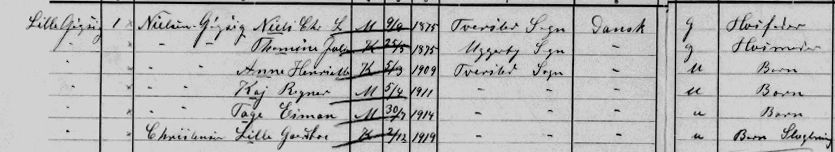 Lille Gjgiig 1 × Nielsen Gjgiig Niels Chr. L M 9/9 1875 Tversted Sogn Dansk g Husfader
" × " " Thomine K 28/8 1875 Uggerby Sogn " g Husmoder
" × " " Anne Henriette K 5/3 1909 Tversted Sogn " u Barn
" × " " Kaj Regner M 5/4 1911 " " " u Barn
" × " " Tage Eiman M 30/7 1914 " " " u Barn
" × Christensen Lille K 2/12 1919 " " " u Barn